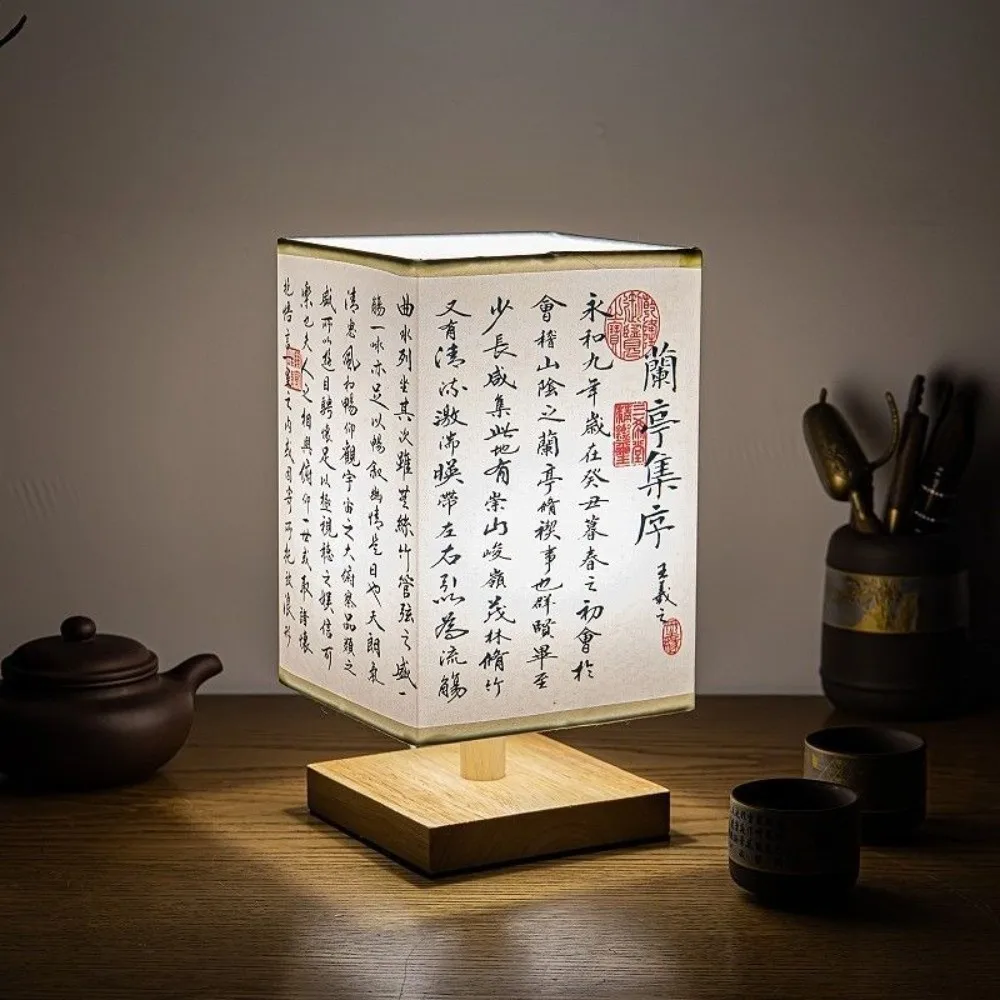 乾隆御覽之寶
蘭亭集序
三希堂精鑑璽
王羲之
永和九年歲在癸丑暮春之初會於
會稽山陰之蘭亭脩禊事也群賢畢至
少長咸集此地有崇山峻嶺茂林脩竹
又有清流激湍暎帶左右引以為流觴
曲水列坐其次雖無絲竹管弦之盛一
觴一詠亦足以暢敘幽情是日也天朗氣
清惠風和暢仰觀宇宙之大俯察品類之
盛所以遊目騁懷足以極視聽之娛信可
樂也夫人之相與俯仰一世或取諸懷
抱悟言一室之內或因寄所託放浪形